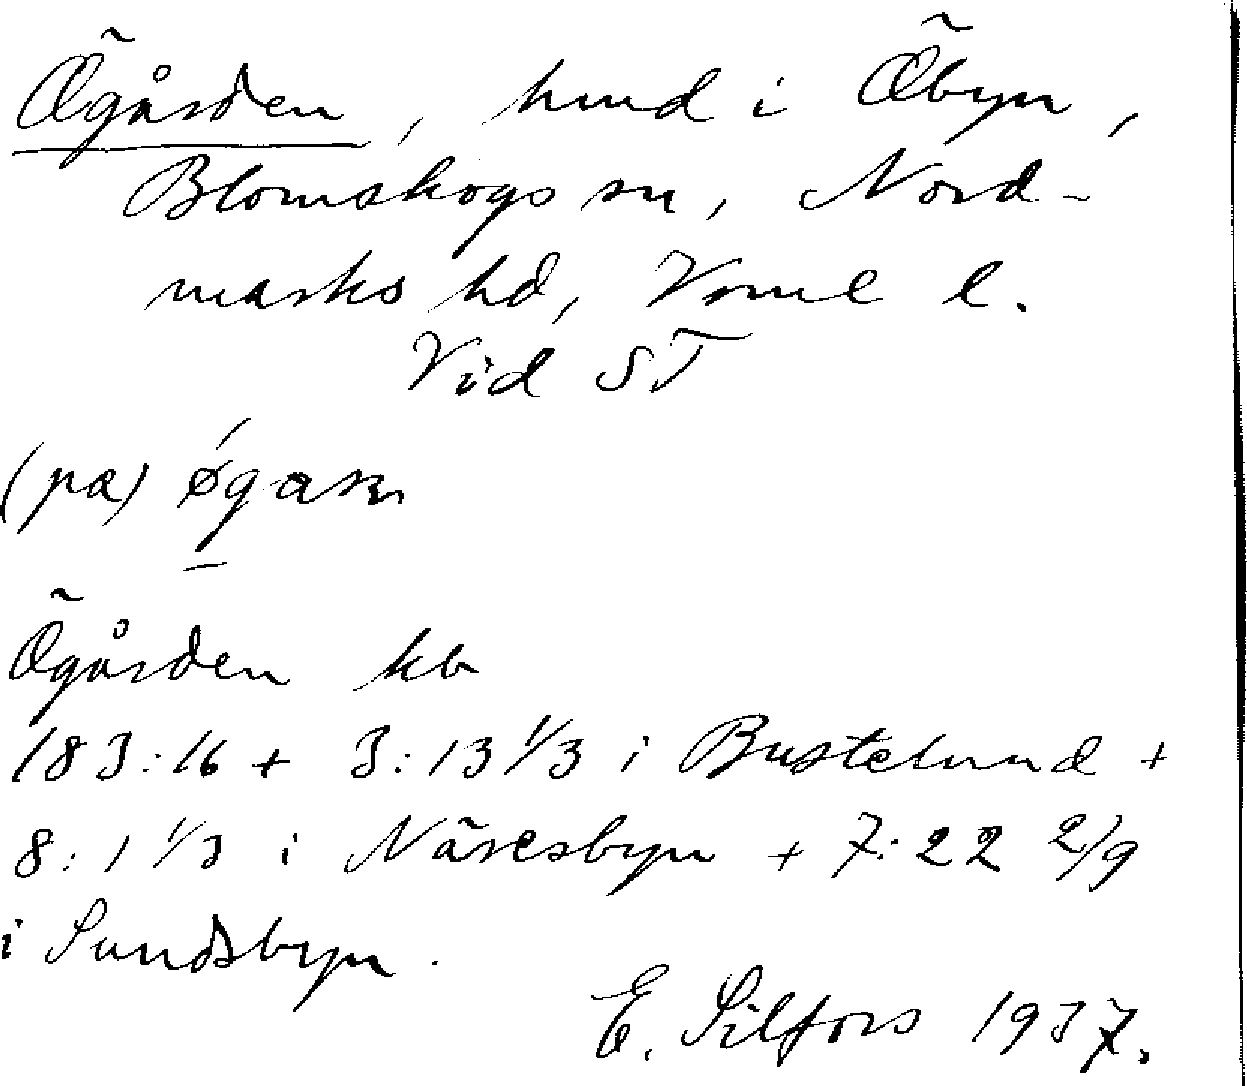 Ögården, hmd i Öbyn,
Blomskogs sn, Nord-
marks hd, Vrml l.
Vid ST
(pa)
Ögården kb
183:16 + 3:13 1/3 i Bustelund +
8:1 1/3 i Näresbyn + 7:22 2/9
i Sundsbyn.
E. Silfors 1937.